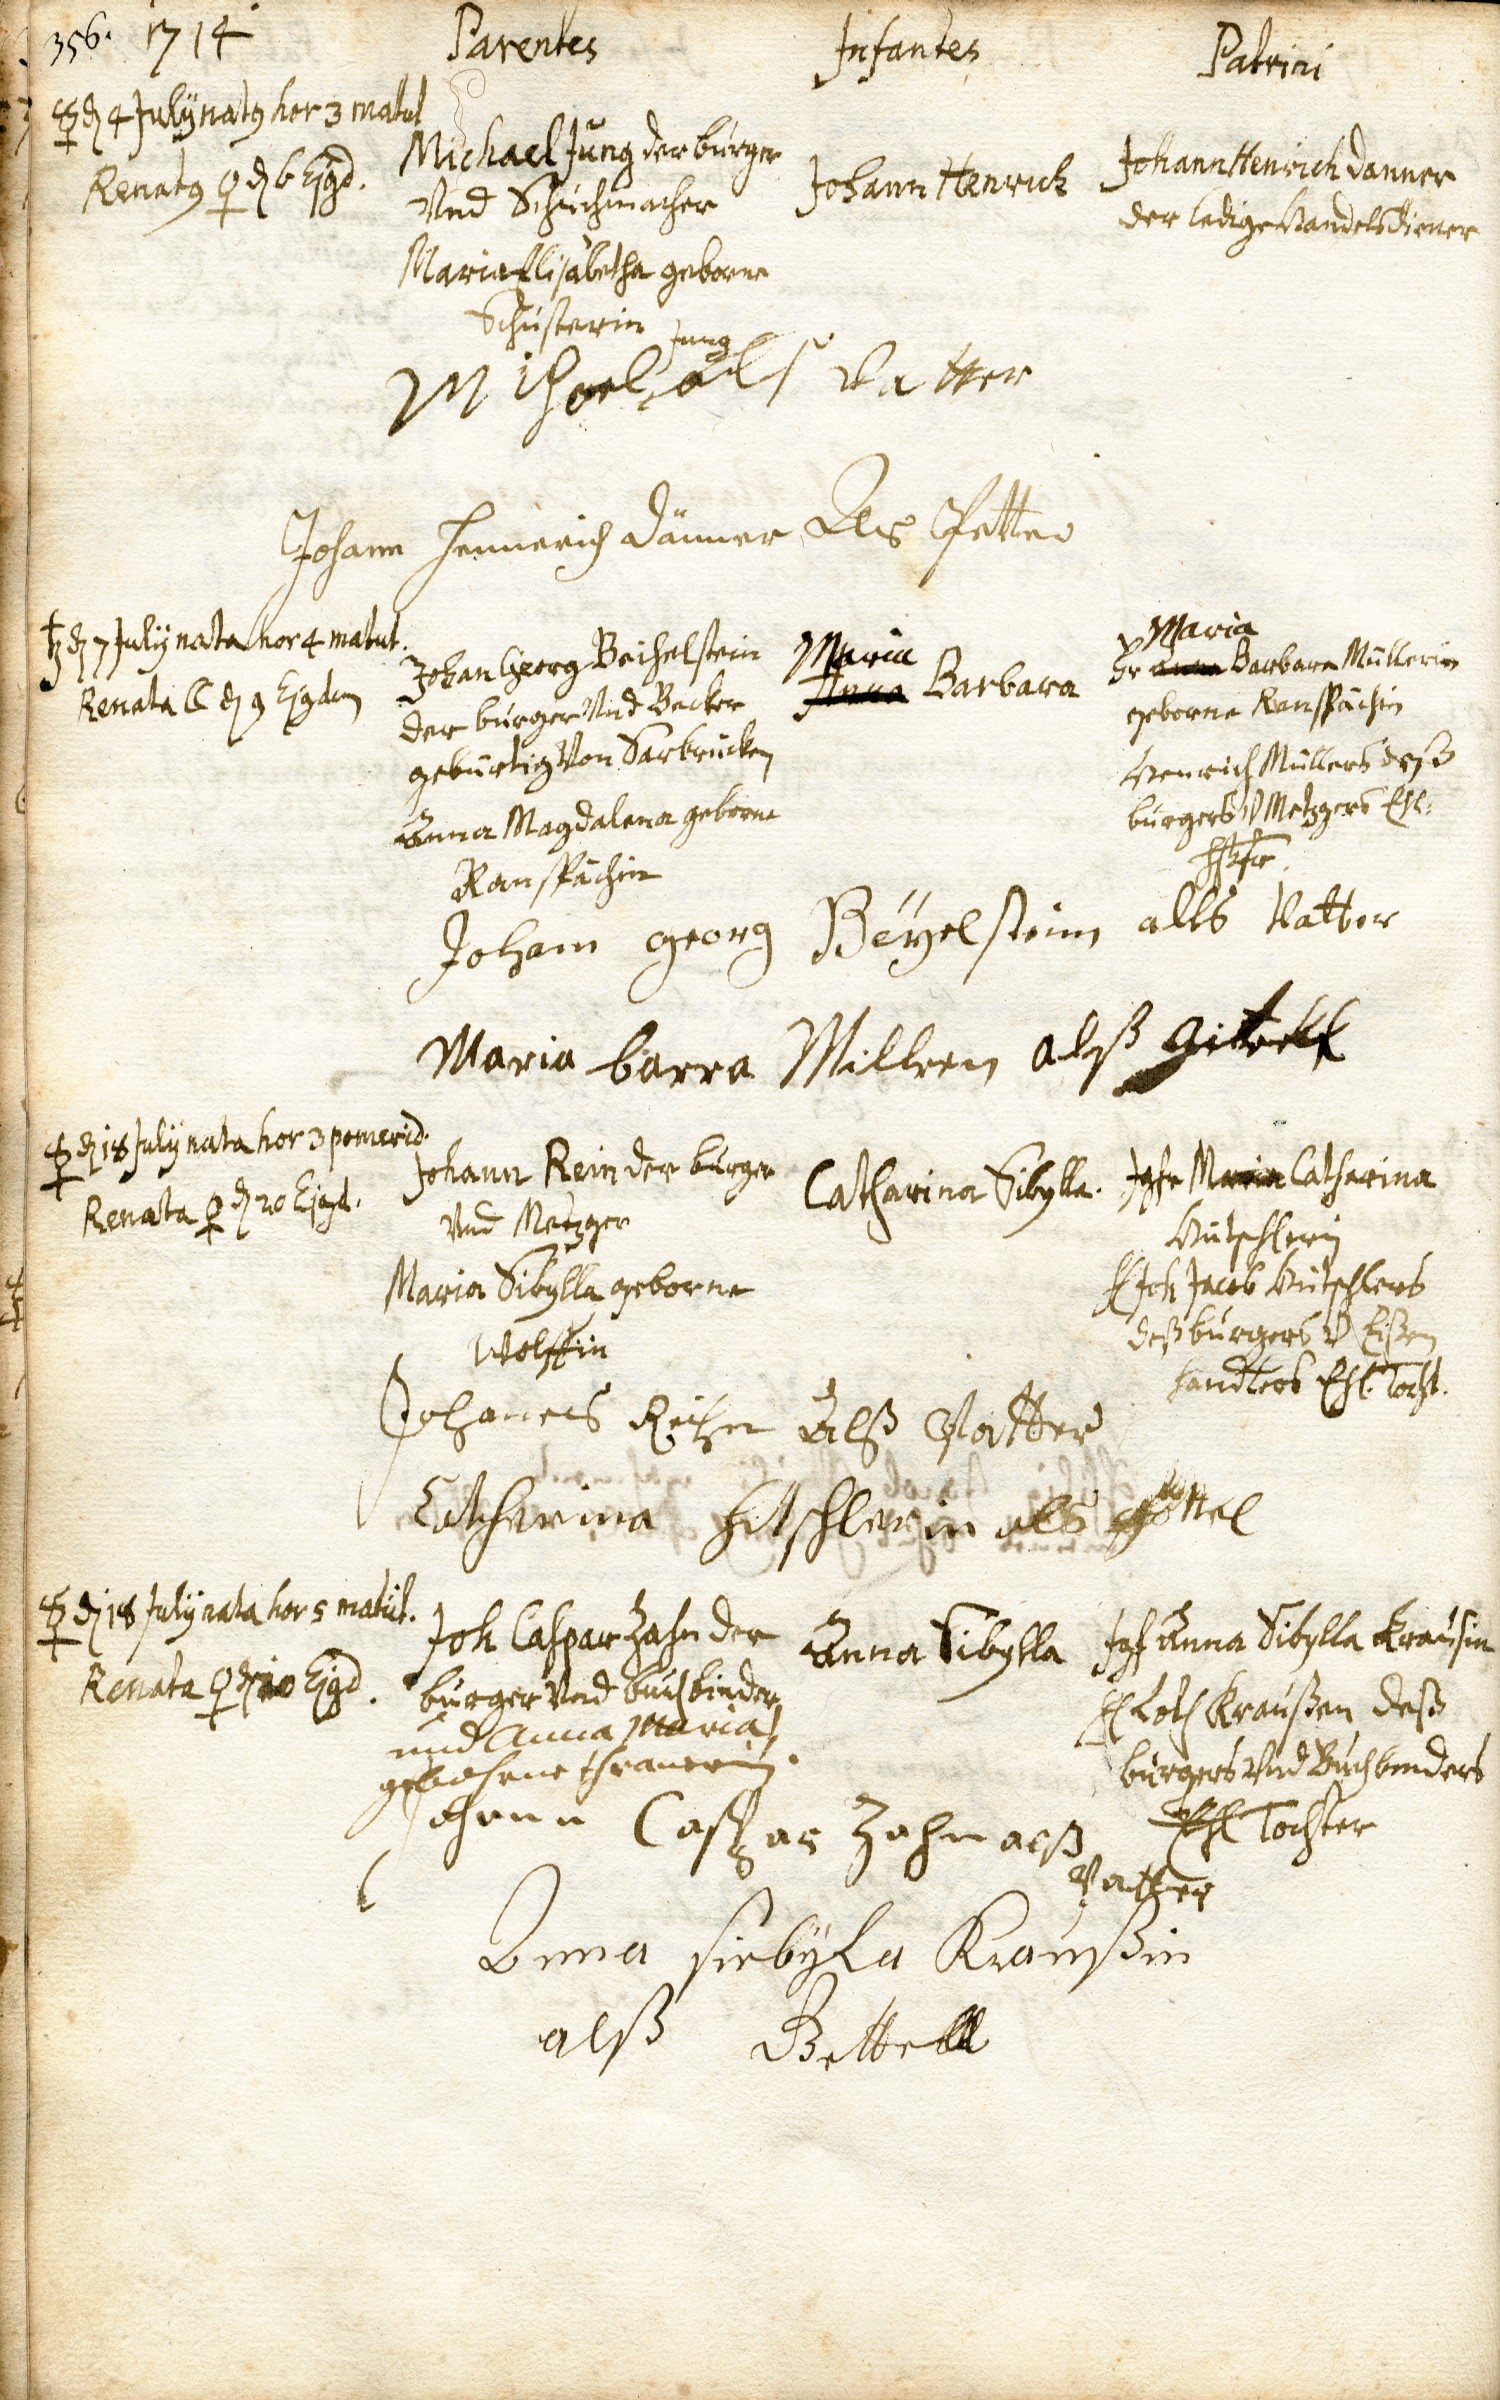 356. 1714
Parentes
Infantes
Patrini
☿ d 4 July natg hor 3 matut
Renatg ♀ d 6 Ejgd.
Michael Jung der bürger
Und Schuchmacher
Maria Elisabetha geborne
Schusterin
Johann Henrich
Johann Henrich Danner
der ledige Handelsdiener
Jung
Michael als Vatter
Johann Hennerich Dänner Als Petter
♄ d 7 July nata hor 4 matut.
Renata ☾ d 9 Ejgdem
Johan Georg Beihelstein
der burger Und Becker
gebürtig Von Sarbrücken
Anna Magdalena geborne
Ranspächin
Maria
Anna Barbara
Maria
Fr Anna Barbara Müllerin
geborne Ranspächin
Henrich Müllers deß
bürgers V Metzgers Ehl:
Johann georg Beÿelstein alls Vatter
Maria barra Millern alß
☿ d 18 July nata hor 3 pomerid.
Renata ♀ d 20 Ejgd.
Johann Rein der burger
Und Metzger
Maria Sibylla geborne
Wolffin
Catharina Sibylla.
Jgfr Maria Catharina
Hütschlerin
H Joh Jacob Hütschlers
deß bürgers V Eißen
handlers Ehl. Tocht.
Johanes Reihn Alß Vatter
Catharina Hitschlerin als göttel
☿ d 18 July nata hor 5 matut.
Renata ♀ d 20 Ejgd.
Joh Caspar Zahn der
bürger Und buchbinder
und Anna Maria
Anna Sibylla
Jgf Anna Sibylla Krausin
H Loth Kraußen deß
bürgers Und Buchbinders
Ehl Tochter
Johann Caspar Zahn alß
Vatter
Anna siebÿla Kraußin
alß Gettell